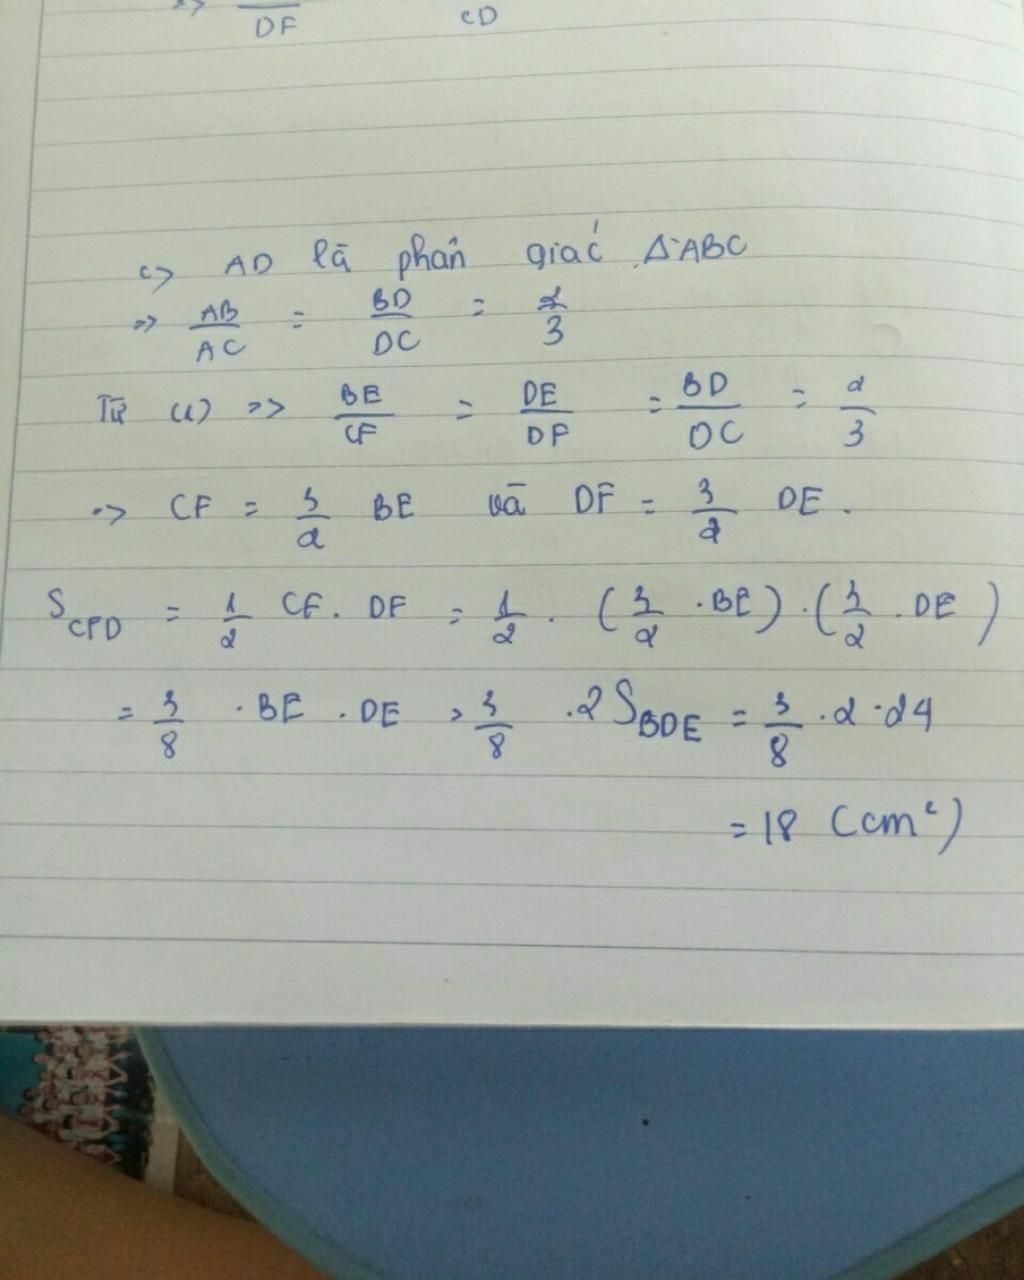 => DF CD
c) AD là phân giác ΔABC
=> AB/AC = BD/DC = 2/3
Từ (1) => BE/CF = DE/DF = BD/DC = 2/3
=> CF = 3/2 BE và DF = 3/2 DE.
S_CFD = 1/2 CF. DF = 1/2 . (3/2 . BE) . (3/2 . DE)
= 3/8 . BE . DE = 3/8 .2S_BDE = 3/8 . 2 . 24
= 18 (cm²)